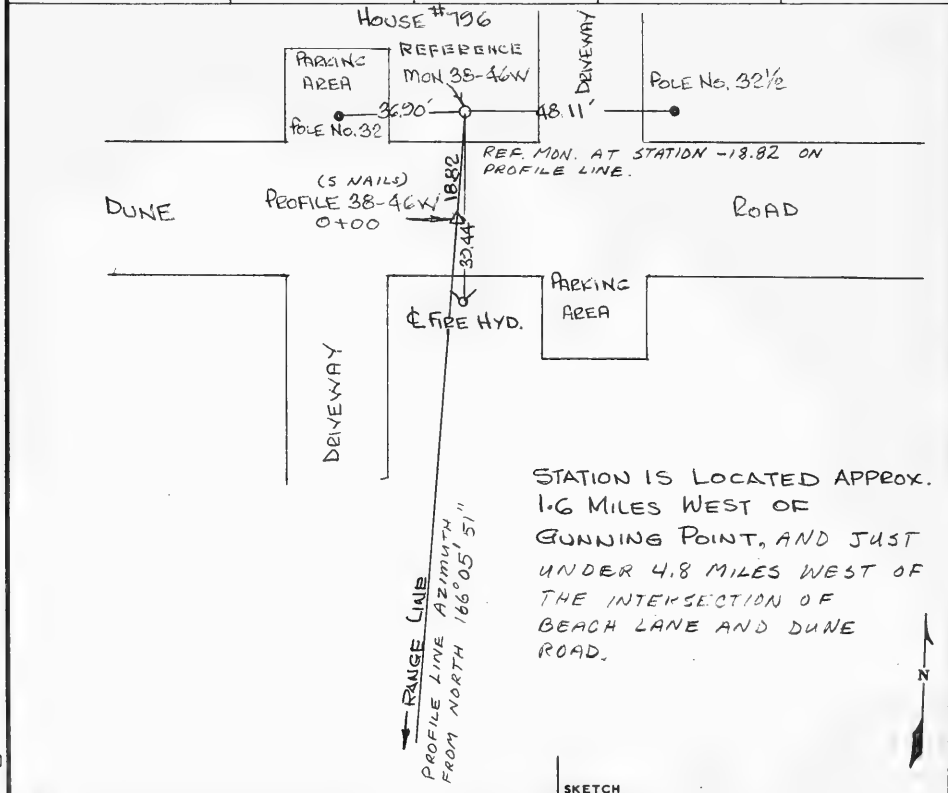 HOUSE #796
PARKING
AREA
REFERENCE
MON. 38-46W
DRIVEWAY
POLE No. 32½
36.90'
48.11'
POLE No. 32
REF. MON. AT STATION -18.82 ON
PROFILE LINE.
18.82
(5 NAILS)
PROFILE 38-46W
0+00
DUNE
ROAD
39.44
PARKING
AREA
℄ FIRE HYD.
DRIVEWAY
STATION IS LOCATED APPROX.
1.6 MILES WEST OF
GUNNING POINT, AND JUST
UNDER 4.8 MILES WEST OF
THE INTERSECTION OF
BEACH LANE AND DUNE
ROAD.
RANGE LINE
PROFILE LINE AZIMUTH
FROM NORTH 166° 05' 51"
N
SKETCH